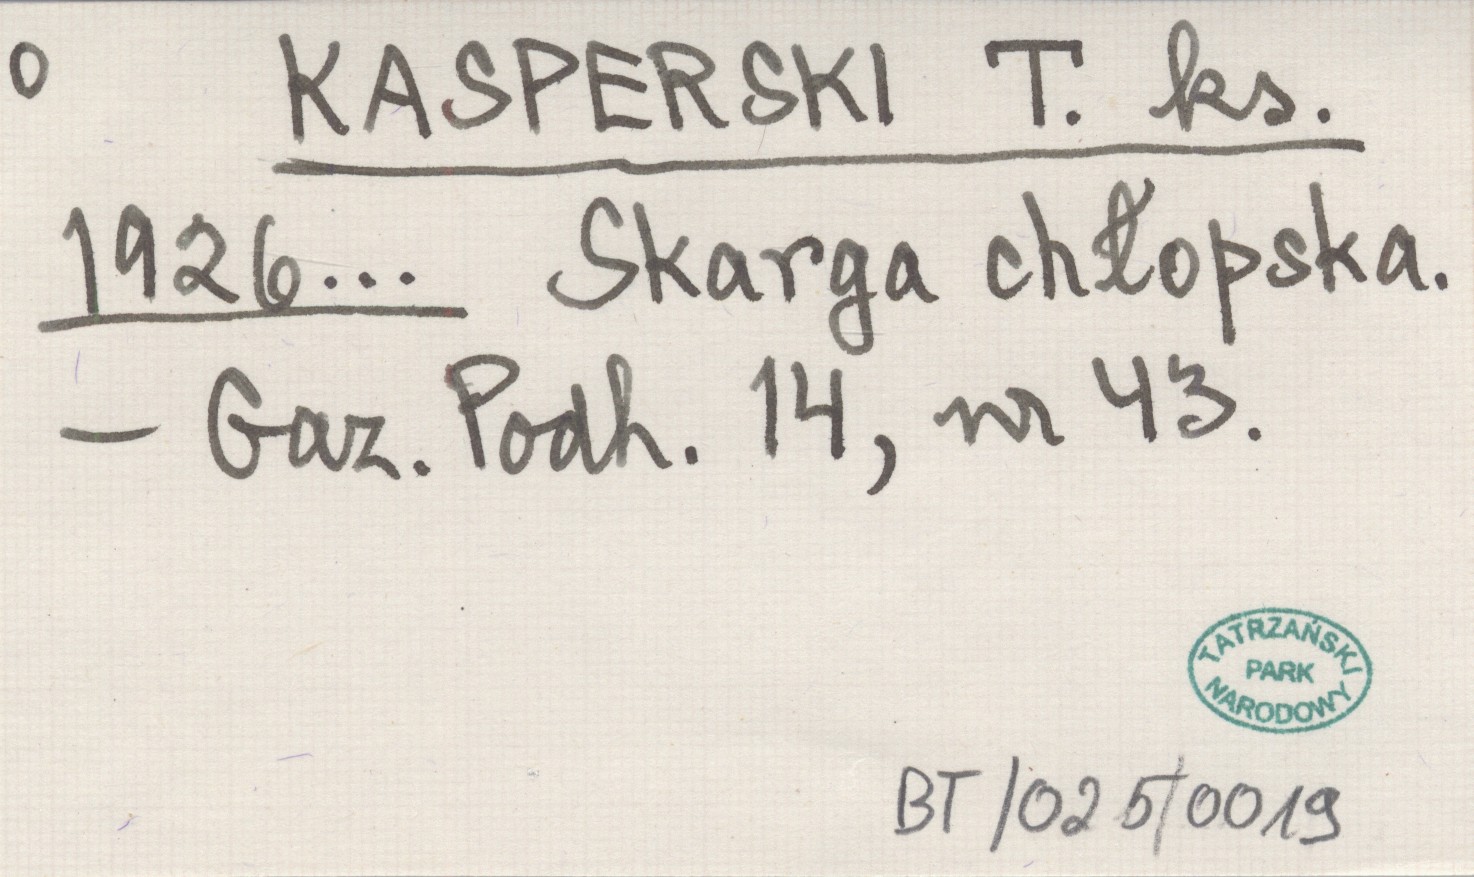 o KASPERSKI T. ks.
1926... Skarga chłopska.
– Gaz. Podh. 14, nr 43.
TATRZAŃSKI
PARK
NARODOWY
BT/025/0019